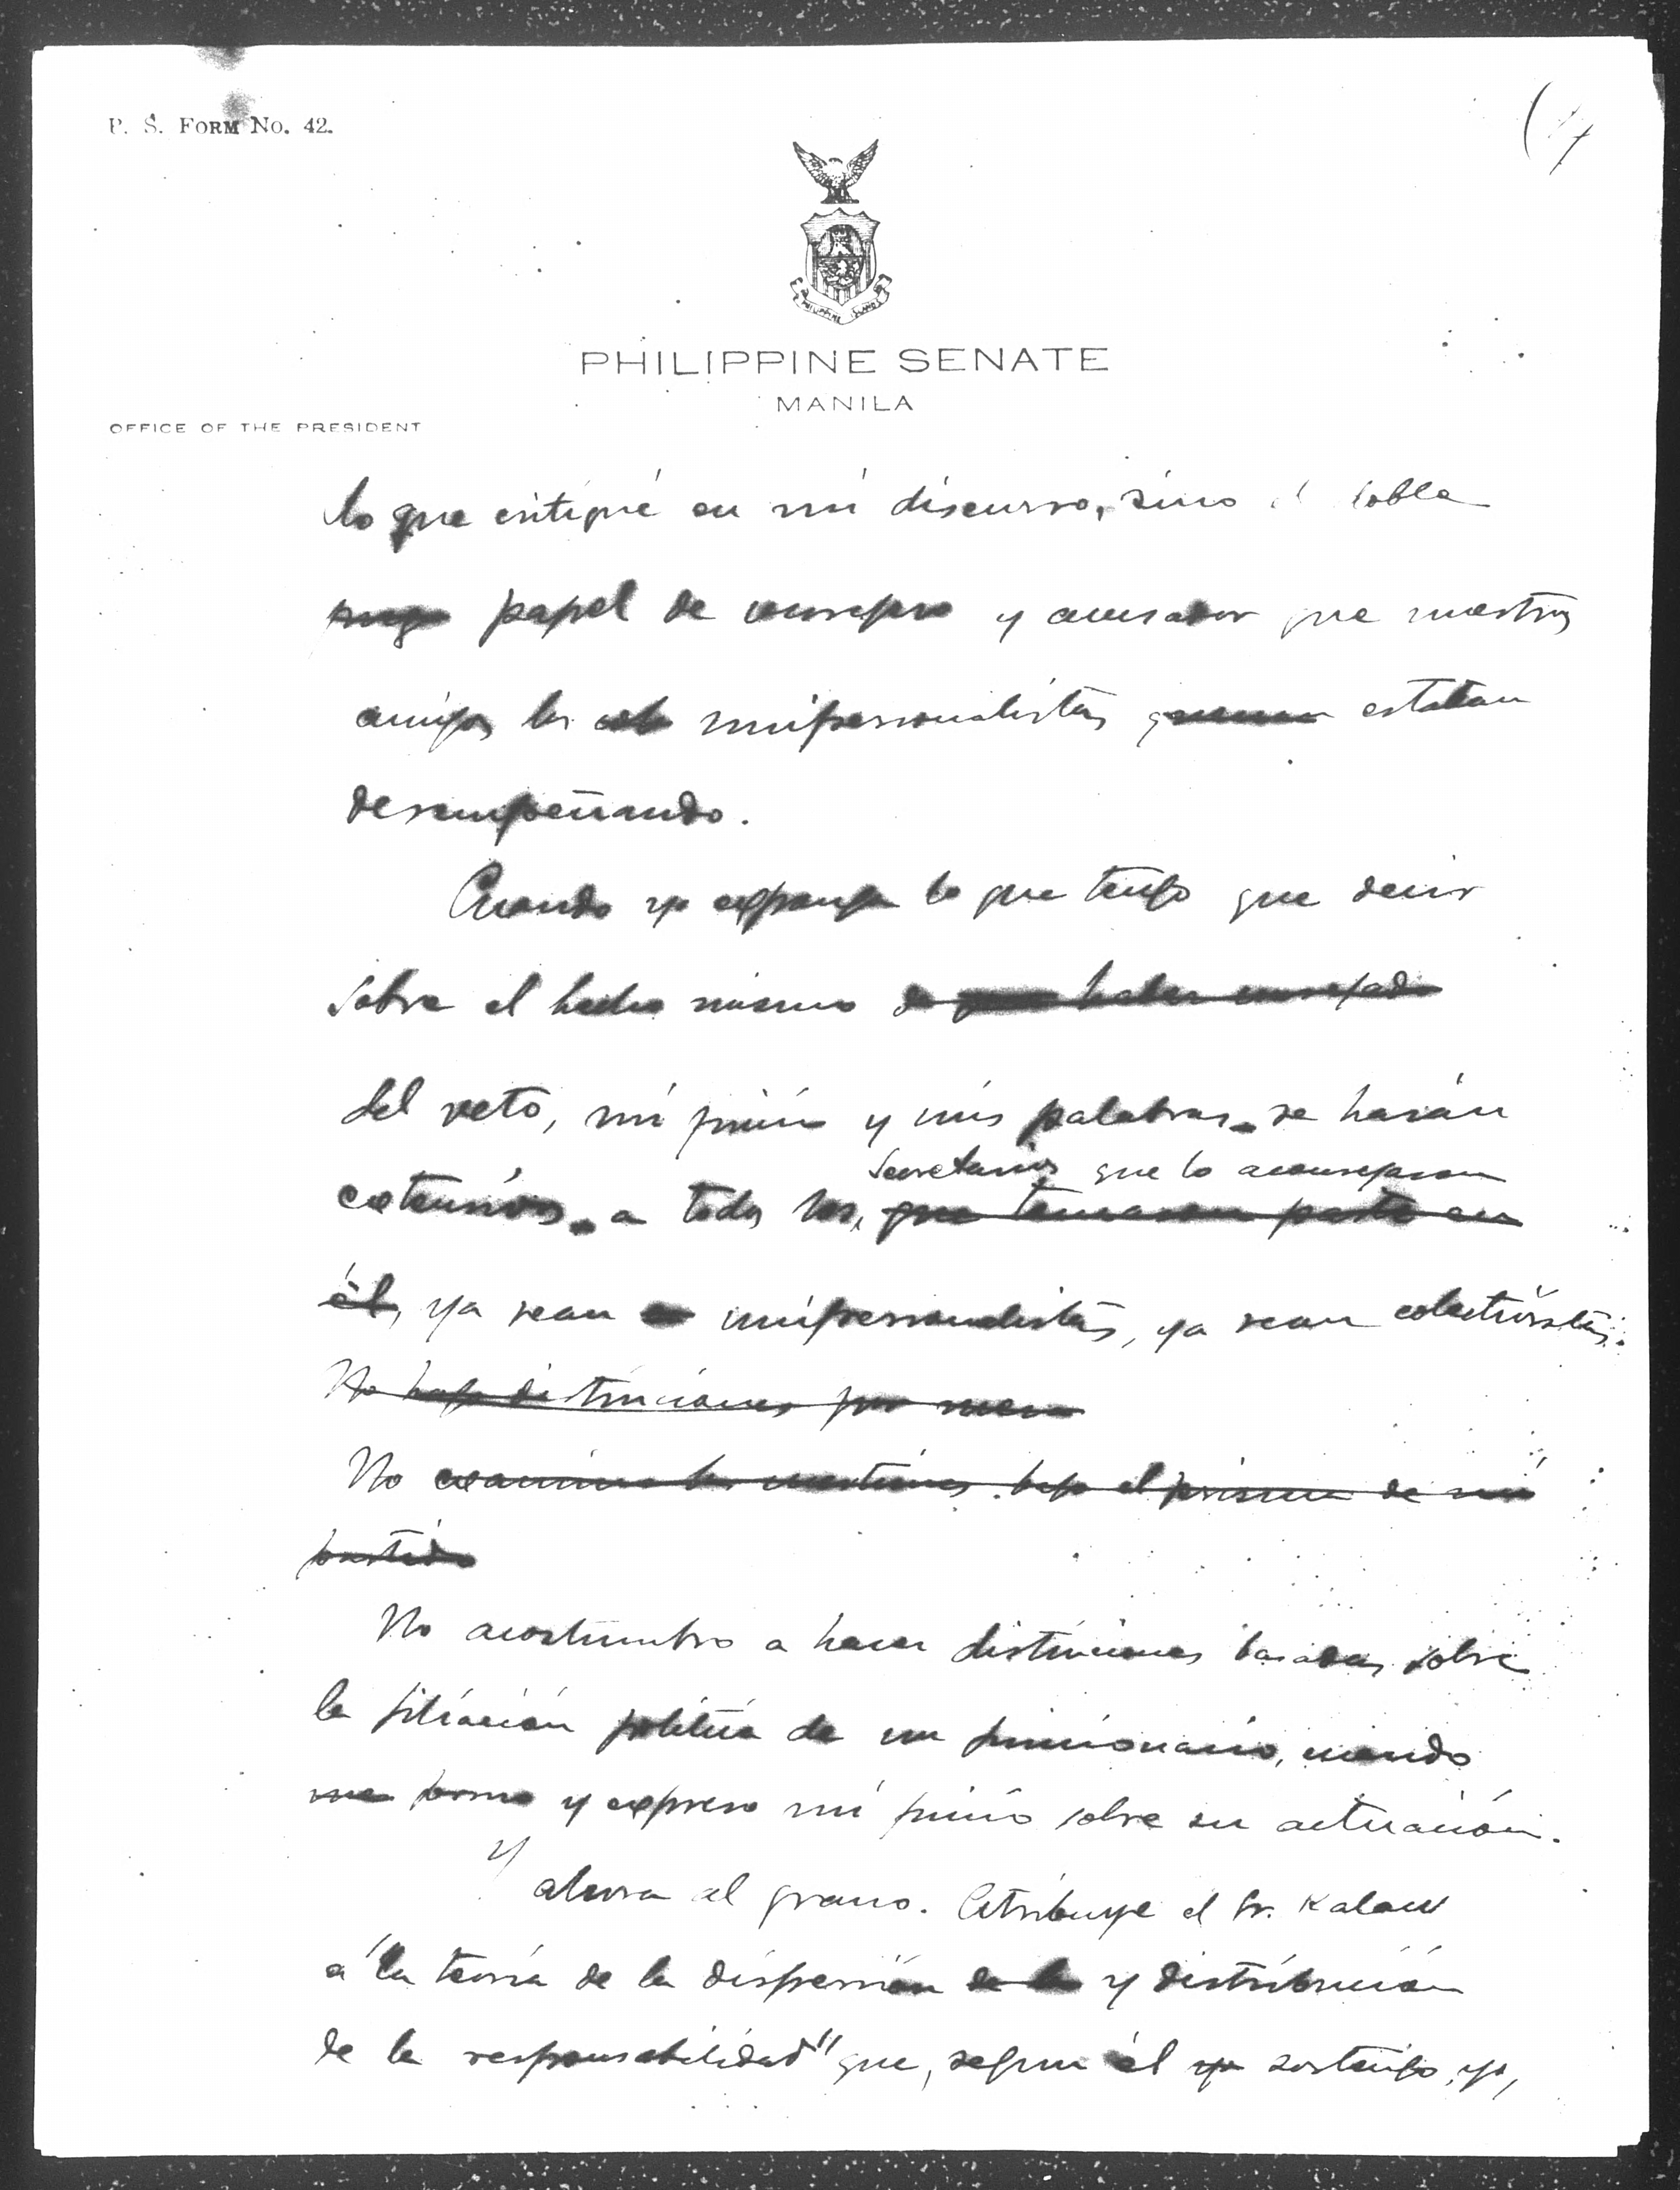 P. S. FORM NO. 42.
PHILIPPINE SENATE
MANILA
OFFICE OF THE PRESIDENT
lo que critiqué en mi discurso, sino el doble
papel de consejero y acusador que nuestros
amigos los unipersonalistas estaban
desempeñando.
Cuando yo exponga lo que tengo que decir
sobre el hecho mismo de haber aconsejado
del veto, mi juicio y mis palabras se harán
Secretarios que lo aconsejaron
extensivos a todos los, que tomaron parte en
él, ya sean unipersonalistas, ya sean colectivistas.
No hago distinciones por
No examino las cuestiones bajo el prisma de mi
partido
No acostumbro a hacer distinciones basadas sobre
la filiación política de un funcionario, cuando
me formo y expreso mi juicio sobre su actuación.
Y
ahora al grano. Atribuye el Sr. Kalaw
a "la teoría de la dispersión de la y distribución
de la responsabilidad" que, segun él yo sostengo, yo,